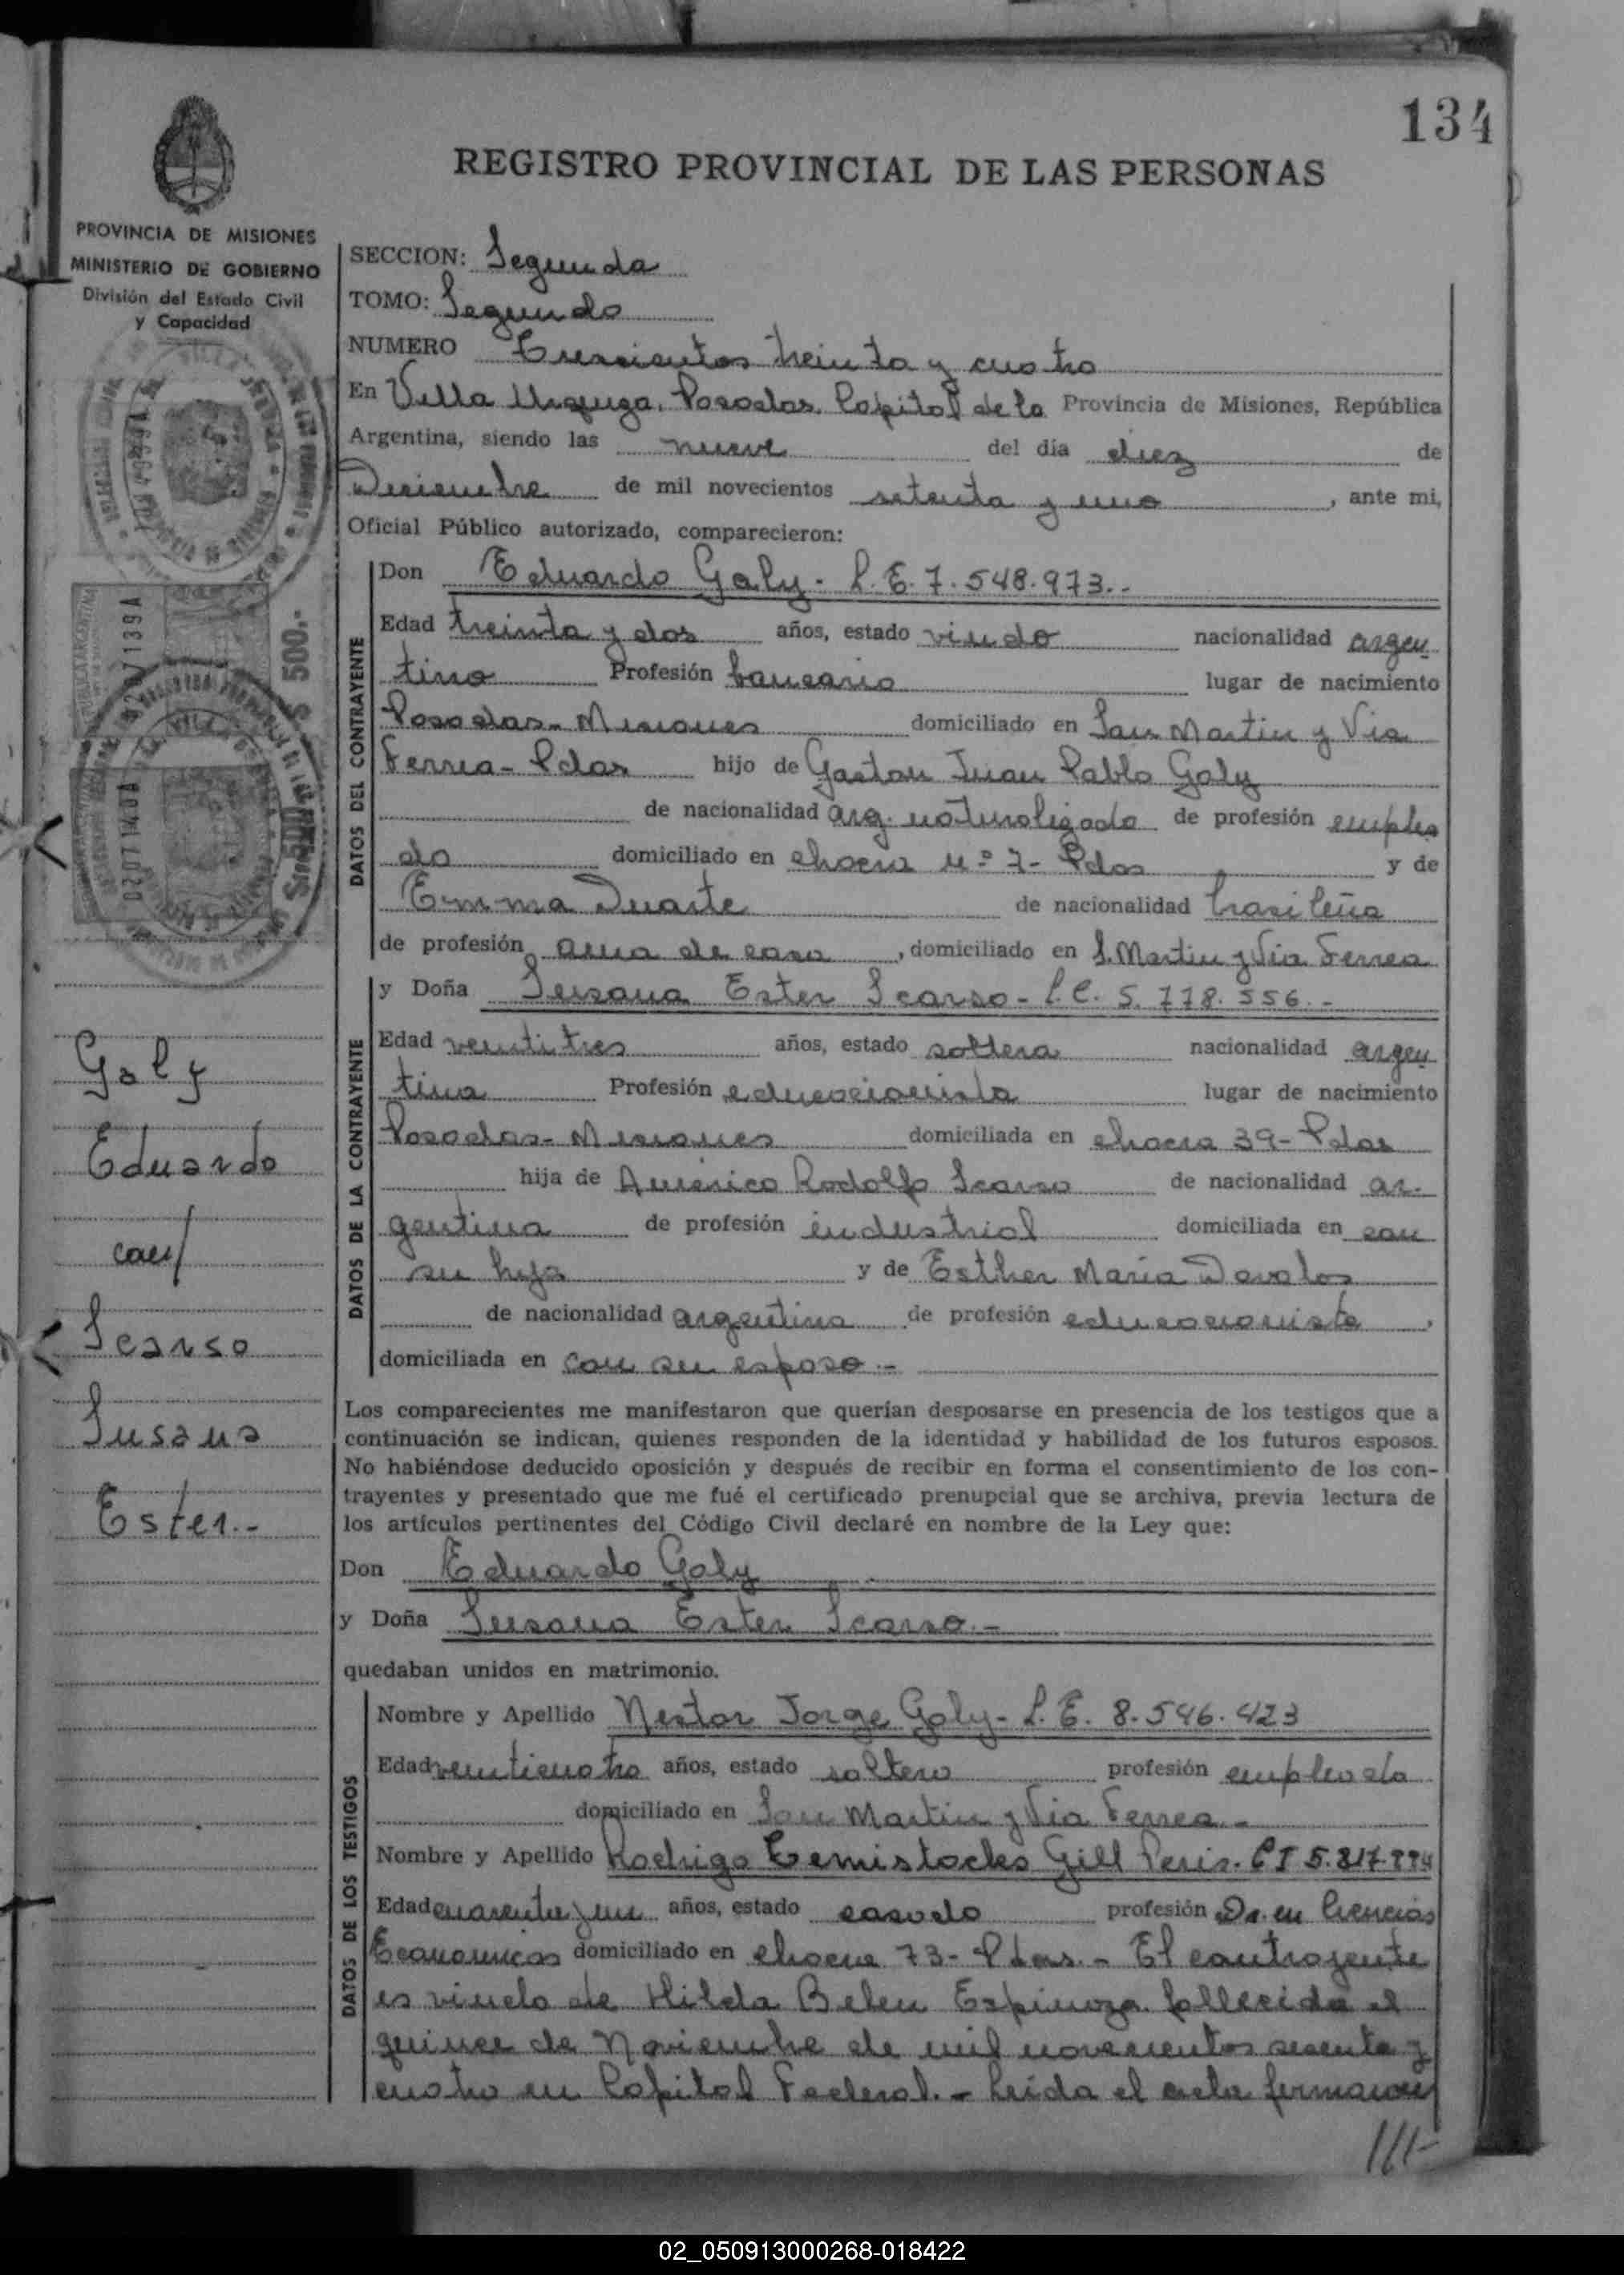 134
REGISTRO PROVINCIAL DE LAS PERSONAS
PROVINCIA DE MISIONES
MINISTERIO DE GOBIERNO
División del Estado Civil
y Capacidad
SECCION: Segunda
TOMO: Segundo
NUMERO Trescientos treinta y cuatro
En Villa Urquiza, Posadas, Capital de la Provincia de Misiones, República
Argentina, siendo las nueve del día diez de
Diciembre de mil novecientos setenta y uno, ante mi,
Oficial Público autorizado, comparecieron:
DATOS DEL CONTRAYENTE
Don Eduardo Galy - L.E. 7.548.973.-
Edad treinta y dos años, estado viudo nacionalidad argen
tino Profesión bancario lugar de nacimiento
Posadas - Misiones domiciliado en San Martin y Via
Ferrea - Pdas hijo de Gaston Juan Pablo Galy
de nacionalidad arg. naturalizado de profesión emplea
do domiciliado en chacra Nº 7 - Pdas y de
Emma Duarte de nacionalidad brasileña
de profesión ama de casa, domiciliado en S. Martin y Via Ferrea
DATOS DE LA CONTRAYENTE
y Doña Susana Ester Scarso - L.C. 5.778.556.-
Edad veintitres años, estado soltera nacionalidad argen
tina Profesión educacionista lugar de nacimiento
Posadas - Misiones domiciliada en chacra 39 - Pdas
hija de Américo Rodolfo Scarso de nacionalidad ar-
gentina de profesión industrial domiciliada en con
su hija y de Esther Maria Davalos
de nacionalidad argentina de profesión educacionista,
domiciliada en con su esposo.-
Los comparecientes me manifestaron que querían desposarse en presencia de los testigos que a
continuación se indican, quienes responden de la identidad y habilidad de los futuros esposos.
No habiéndose deducido oposición y después de recibir en forma el consentimiento de los con-
trayentes y presentado que me fué el certificado prenupcial que se archiva, previa lectura de
los artículos pertinentes del Código Civil declaré en nombre de la Ley que:
Don Eduardo Galy
y Doña Susana Ester Scarso.-
quedaban unidos en matrimonio.
DATOS DE LOS TESTIGOS
Nombre y Apellido Nestor Jorge Galy - L.E. 8.546.423
Edad veinticuatro años, estado soltero profesión empleado
domiciliado en San Martin y Via Ferrea.-
Nombre y Apellido Rodrigo Temistocles Gill Peris. CI 5.817.
Edad cuarenta y un años, estado casado profesión Dr. en Ciencias
Economicas domiciliado en chacra 73 - Pdas.- El contrayente
es viudo de Hilda Belen Espinoza fallecida el
quince de Noviembre de mil novecientos sesenta y
cuatro en Capital Federal.- Leida el acta firmaron
///-
Galy
Eduardo
con/
Scarso
Susana
Ester.-
$ 500.-
02071139A
02071140A
02_050913000268-018422